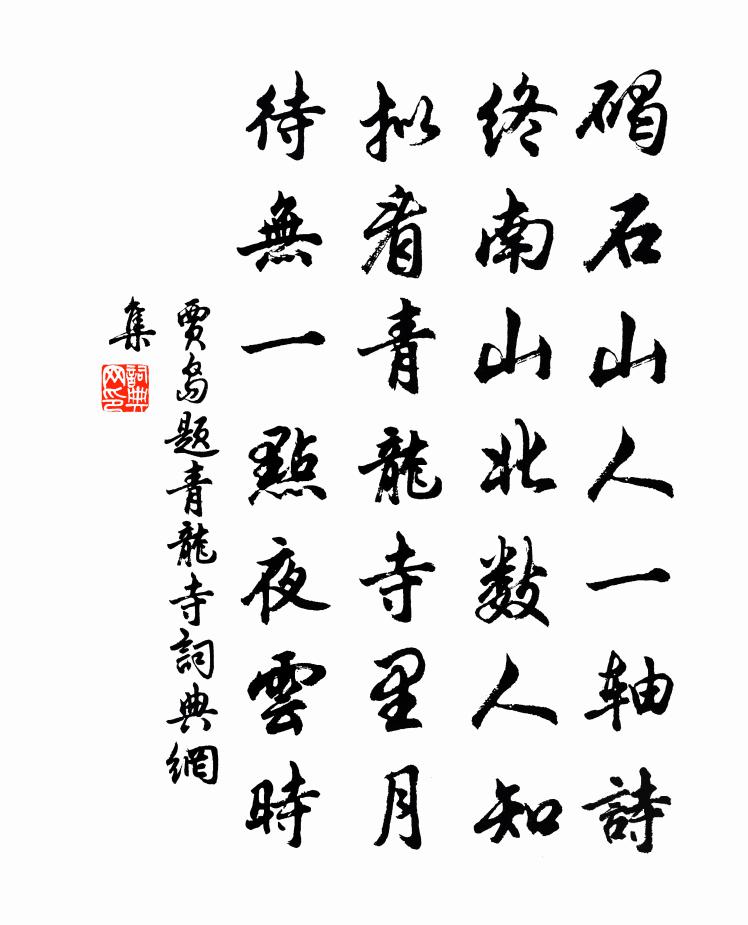 碣石山人一轴詩
终南山北数人知
拟看青龍寺里月
待無一點夜雲時
賈岛题青龍寺詞典網
集
詞典网印